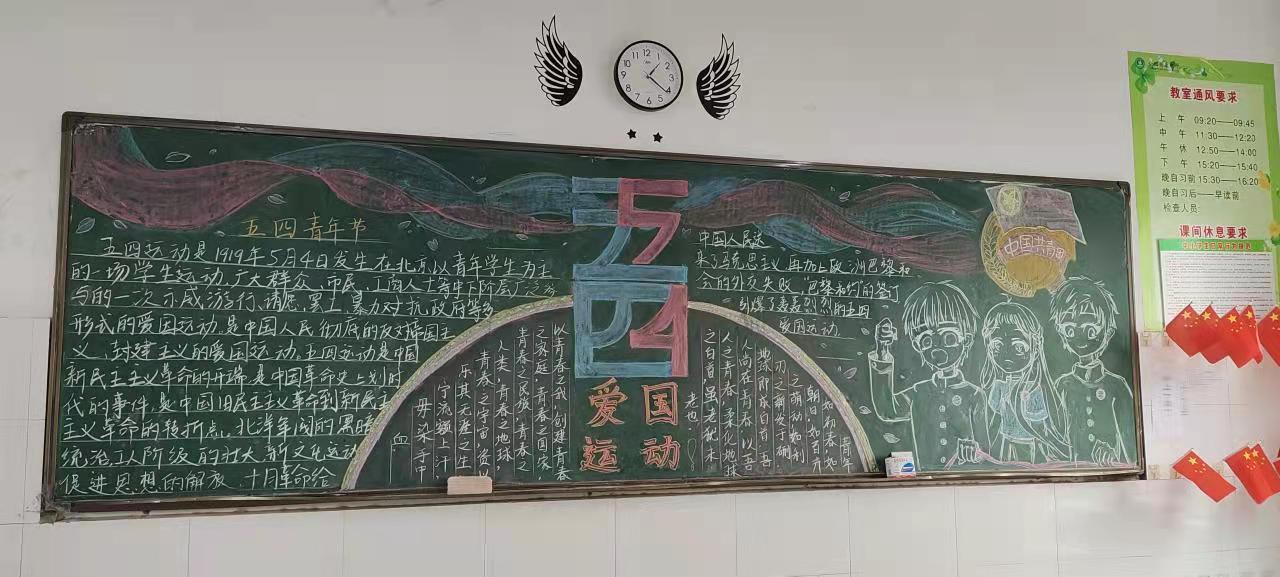 五四青年节
五四运动是1919年5月4日发生在北京以青年学生为主
的一场学生运动,广大群众、市民、工商人士等中下阶层广泛参
与的一次示威游行、请愿、罢工、暴力对抗政府等多
形式的爱国运动,是中国人民彻底的反对帝国主
义、封建主义的爱国运动。五四运动是中国
新民主主义革命的开端,是中国革命史上划时
代的事件,是中国旧民主主义革命到新民主
主义革命的转折点。北洋军阀的黑暗
统治工人阶级的壮大,新文化运动
促进思想的解放、十月革命给
五四
爱国
运动
以青春之我,创建青春
之家庭,青春之国家,
青春之民族,青春之
人类,青春之地球,
青春之宇宙,资以
乐其无涯之生
宁流额上汗
毋染手中
血
中国人民送
来了马克思主义,再加上欧洲巴黎和
会的外交失败,"巴黎和约"的签订
引爆了轰轰烈烈的五四
爱国运动。
青年
如初春,如
朝日,如百卉
之萌动,如利
刃之新发于硎
地球即成白首,吾
人尚在青春,以吾
人之青春,柔化地球
之白首,虽老犹未
老也!
中国共青团
12
1
2
3
4
5
6
7
8
9
10
11
教室通风要求
上 午 09:20——09:45
中 午 11:30——12:20
午 休 12:50——14:00
下 午 15:20——15:40
晚自习前 15:30——16:20
晚自习后——早读前
检查人员:
课间休息要求